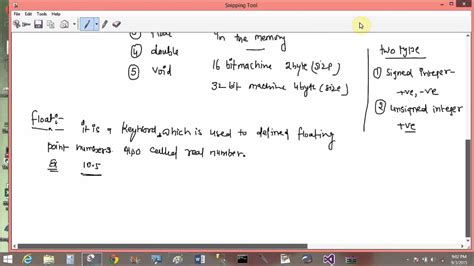 Snipping Tool
File Edit Tools Help
③ float in the memory
④ double
⑤ void 16 bit machine 2byte (size)
32 bit machine 4byte (size)
two type
① signed integer-
+ve, -ve
② unsigned integer
+ve
float:-
it is a keyword, which is used to defined floating
point numbers also called real number.
Eg 10.5
9:02 PM
9/3/2015